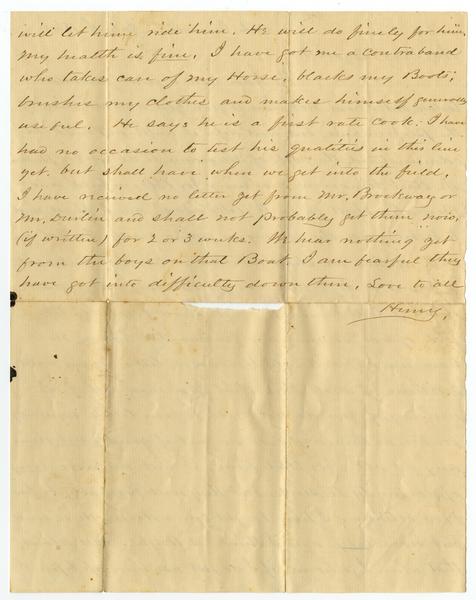 will let him ride him. He will do finely for him,
My health is fine, I have got me a contraband
who takes care of my Horse, blacks my Boots,
brushes my clothes and makes himself generally
useful. He says he is a first rate cook. I have
had no occasion to test his qualities in this line
yet, but shall have when we get into the field.
I have received no letter yet from Mr. Brockway or
Mr. Durlin and shall not probably get them now,
(if written) for 2 or 3 weeks. We hear nothing yet
from the boys on that Boat. I am fearful they
have got into difficulty down there, Love to all
Henry,